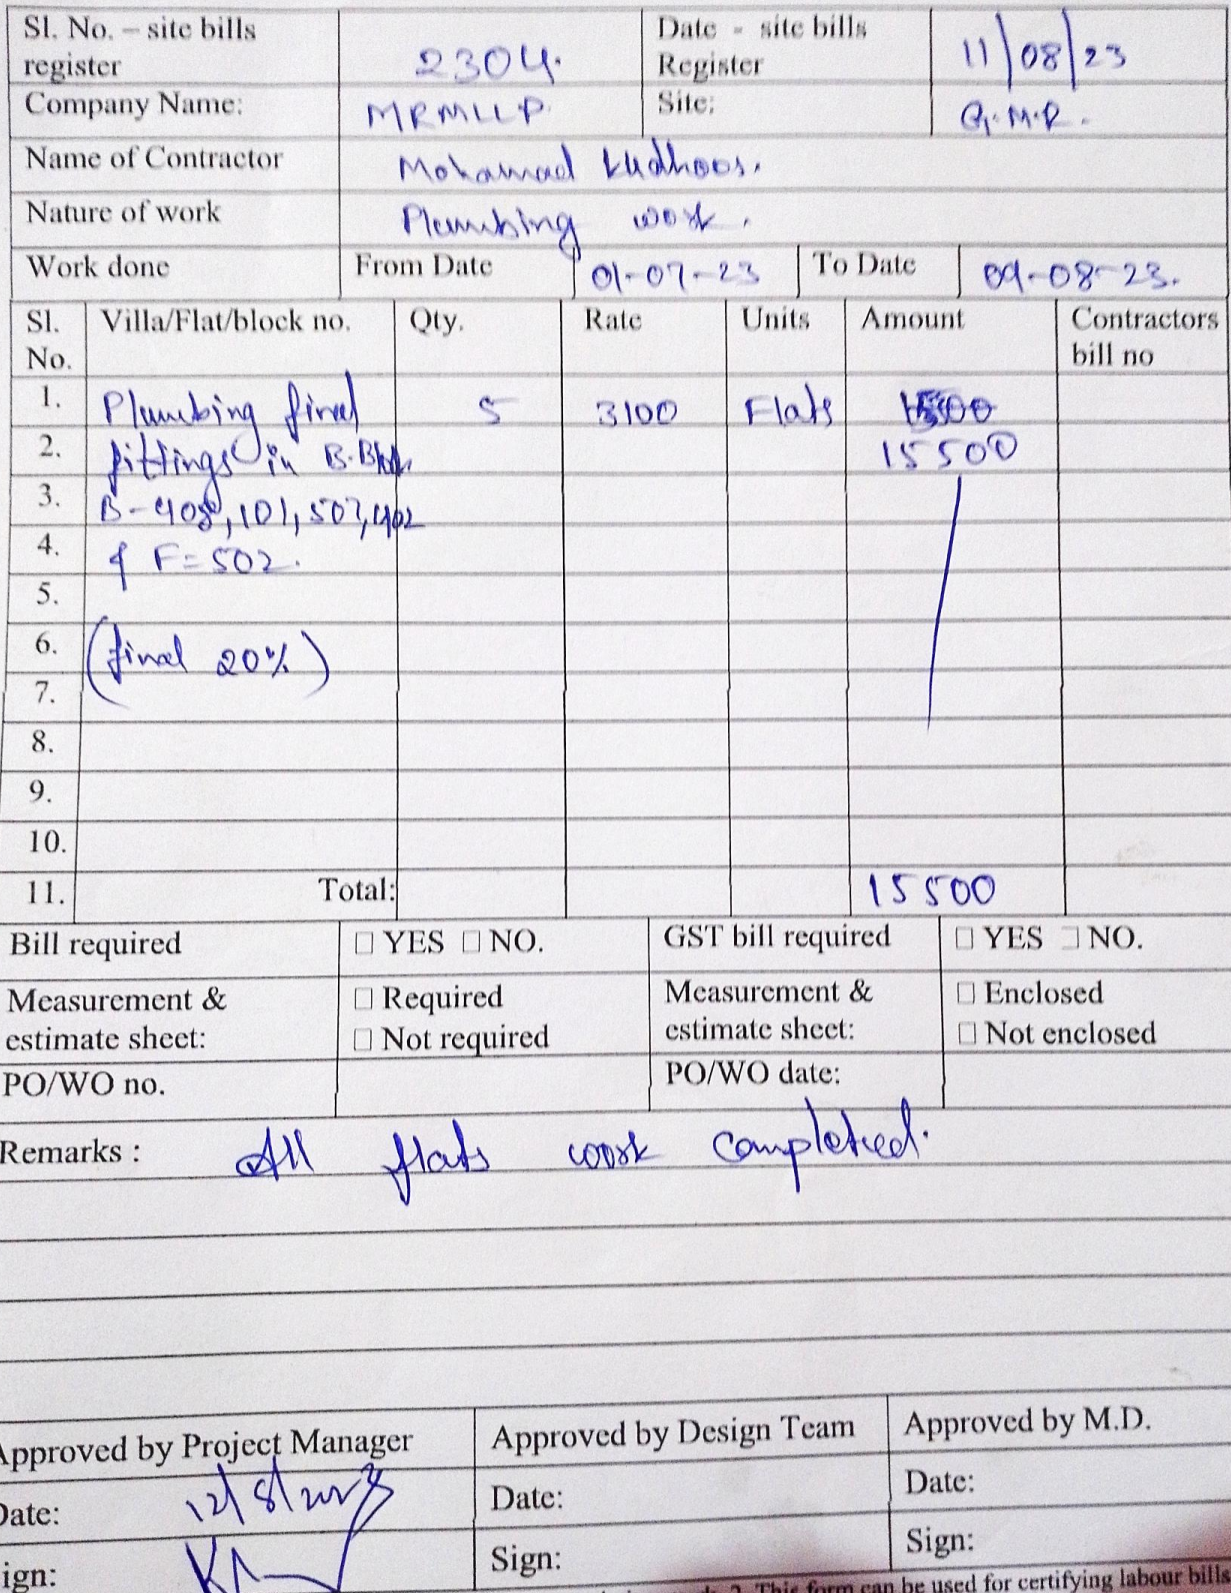 Sl. No. – site bills register 2304. Date - site bills Register 11/08/23
Company Name: MRMLLP. Site: G.M.R.
Name of Contractor Mohamad Kudhoos.
Nature of work Plumbing work.
Work done From Date 01-07-23 To Date 09-08-23.
Sl. No. Villa/Flat/block no. Qty. Rate Units Amount Contractors bill no
1. Plumbing final 5 3100 Flats
2. fittings in B. 15500
3. B- 101, 507, 402
4. & F= 502.
5.
6. (final 20%)
7.
8.
9.
10.
11. Total: 15500
Bill required □ YES □ NO. GST bill required □ YES □ NO.
Measurement & estimate sheet: □ Required □ Not required Measurement & estimate sheet: □ Enclosed □ Not enclosed
PO/WO no. PO/WO date:
Remarks : All flats work completed.
Approved by Project Manager Approved by Design Team Approved by M.D.
Date: 12/8/2023 Date: Date:
Sign: Sign: Sign:
This form can be used for certifying labour bills